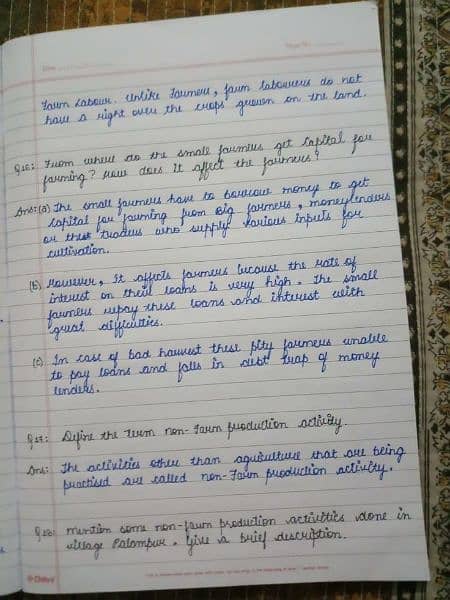 Farm Labour. Unlike Farmers, farm labourers do not
have a right over the crops grown on the land.
Q16: From where do the small farmers get capital for
farming? How does it affect the farmers?
Ans:(a) The small farmers have to borrow money to get
capital for farming from Big farmers, moneylenders
or the traders who supply various inputs for
cultivation.
(b) However, It affects farmers because the rate of
interest on their loans is very high. The small
farmers repay these loans and interest with
great difficulties.
(c) In case of bad harvest these farmers unable
to pay loans and falls in debt trap of money
lenders.
Q17: Define the term non-Farm production activity.
Ans: The activities other than agriculture that are being
practised are called non-Farm production activity.
Q18: Mention some non-farm production activities done in
village Palampur. Give a brief description.